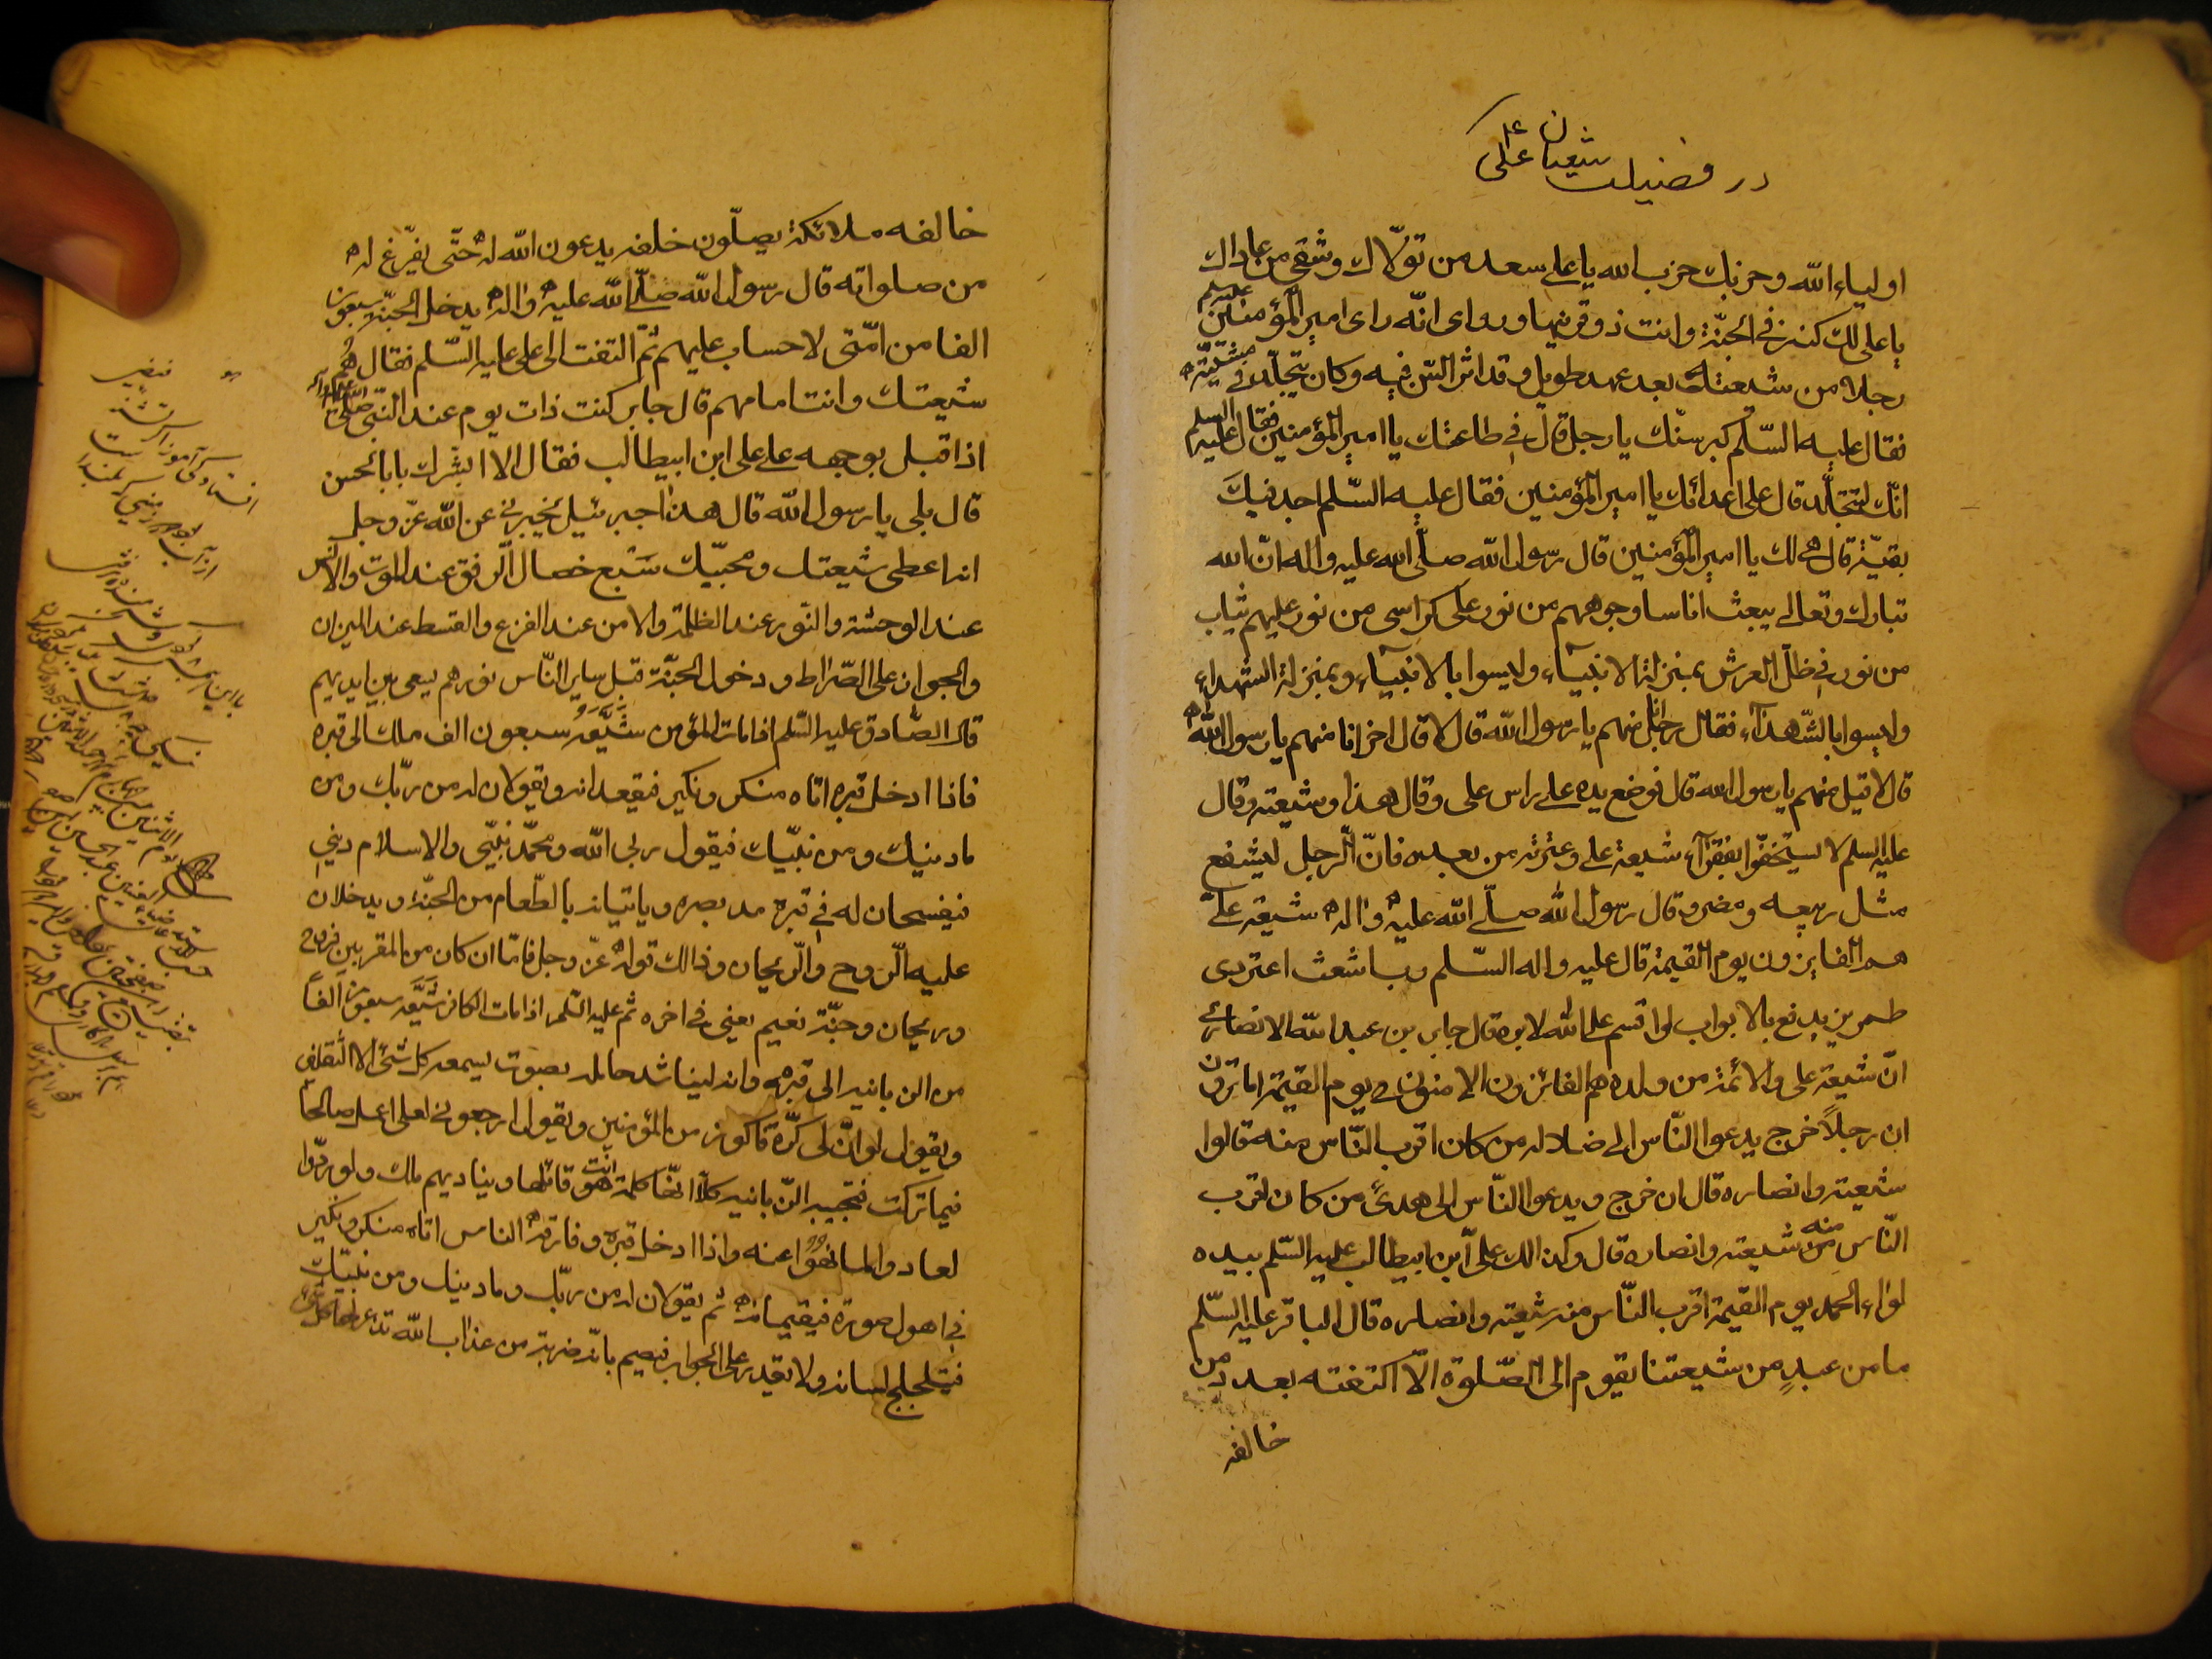 در فضيلت شيعيان على ع
اولياء الله وحزبك حزب الله يا على سعد من تولّاك وشقى من عاداك
يا على لك كنز فى الجنّة وانت ذو قرنيها وروى انّه راى امير المؤمنين عليه السلم
رجلا من شيعته بعد عهد طويل وقد اثر السّن فيه وكان يتجلّد فى مشيته
فقال عليه السّلم كبر سنّك يا رجل قال فى طاعتك يا امير المؤمنين فقال عليه السلم
انّك لتتجلّد قال على اعدائك يا امير المؤمنين فقال عليه السّلم اجد فيك
بقيّة قال هى لك يا امير المؤمنين قال رسول الله صلّى الله عليه واله انّ الله
تبارك وتعالى يبعث اناسا وجوههم من نور على كراسى من نور عليهم ثياب
من نور فى ظلّ العرش بمنزلة الانبيآء وليسوا بالانبيآء وبمنزلة الشهداء
وليسوا بالشّهدآء فقال رجل انا منهم يا رسول الله قال لا قال اخر انا منهم يا رسول الله
قال لا قيل من هم يا رسول الله قال فوضع يده على راس على وقال هذا وشيعته وقال
عليه السلم لا تستخفّوا بفقرآء شيعة على وعترته من بعده فانّ الرّجل ليشفع
مثل ربيعه ومضر وقال رسول الله صلّى الله عليه واله شيعة على
هم الفايزون يوم القيمة قال عليه واله السّلم رب اشعث اغبر ذى
طمرين يدفع بالابواب لو اقسم على الله لابره قال جابر بن عبد الله الانصارى
انّ شيعة على والائمة من ولده هم الفائزون الامنون يوم القيمة اما ترون
ان رجلاً خرج يدعوا النّاس الى ضلالة من كان اقرب النّاس منه قالوا
شيعته وانصاره قال ان خرج ويدعوا النّاس الى هدىً من كان اقرب
النّاس منه من شيعته وانصاره قال وكذالك على ابن ابيطالب عليه السّلم بيده
لواء الحمد يوم القيمة اقرب النّاس منه شيعته وانصاره قال الباقر عليه السّلم
ما من عبدٍ من شيعتنا يقوم الى الصّلوة الّا اكتنفته بعدد من
خالفه
خالفه ملائكة يصلّون خلفه يدعون الله له حتّى يفرّغ له
من صلواته قال رسول الله صلّى الله عليه واله يدخل الجنّة سبعون
الفا من امّتى لا حساب عليهم ثمّ التفت الى على عليه السّلم فقال هُم
شيعتك وانت امامهم قال جابر كنت ذات يوم عند النّبى صلى الله عليه واله
اذ اقبل بوجهه على على ابن ابيطالب فقال الا ابشّرك يابا الحسن
قال بلى يا رسول الله قال هذا جبرئيل يخبرنى عن الله عزّ وجل
انه اعطى شيعتك ومحبيّك سَبْع خصال الرّفق عند الموت والانس
عند الوحشة والنّور عند الظلمة والامن عند الفزع والقسط عند الميزان
والجواز على الصّراط ودخول الجنّة قبل ساير النّاس نورهم يسعى بين ايديهم
قال الصّادق عليه السّلم اذا مات المؤمن شَيَّعَهُ سبعون الف ملك الى قبره
فاذا ادخل قبره اتاه منكر ونكير فيقعدانه ويقولان له من ربّك ومن
ما دينك ومن نبيّك فيقول ربى الله ومحمّد نبيّى والاسلام دينى
فيفسحان له فى قبره مد بصره وياتيانه بالطّعام من الجنّة ويدخلان
عليه الرّوح والرّيحان وذالك قوله عزّ وجل فامّا ان كان من المقربين فروح
وريحان وجنّة نعيم يعنى فى اخره ثم عليه السّلم اذا مات الكافر شَيَّعَه سبعون الفاً
من الزبانيه الى قبره وانه ليناشد حامله بصوت يسمعه كل شئ الا الثقلان
ويقول لو انّ لى كرّة فاكون من المؤمنين ويقول ارجعونى لعلى اعمل صالحاً
فيما تركت فتجيبه الزّبانيه كلّا انّها كلمة انت قائلها ويناديهم ملك ولو ردّوا
لعادوا لما نهُوُا عنه واذا ادخل قبره وفارقه الناس اتاه منكر ونكير
فى اهول صورة فيقيمانه ثم يقولان له من ربّك وما دينك ومن نبيّك
فيتلجلج لسانه ولا يقدر على الجواب فيضربانه ضربة من عذاب الله تذعر لها كل شئ